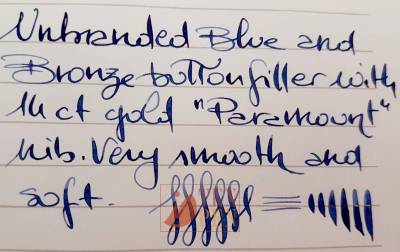 Unbranded Blue and
Bronze button filler with
14 ct gold "Paramount"
nib. Very smooth and
soft.